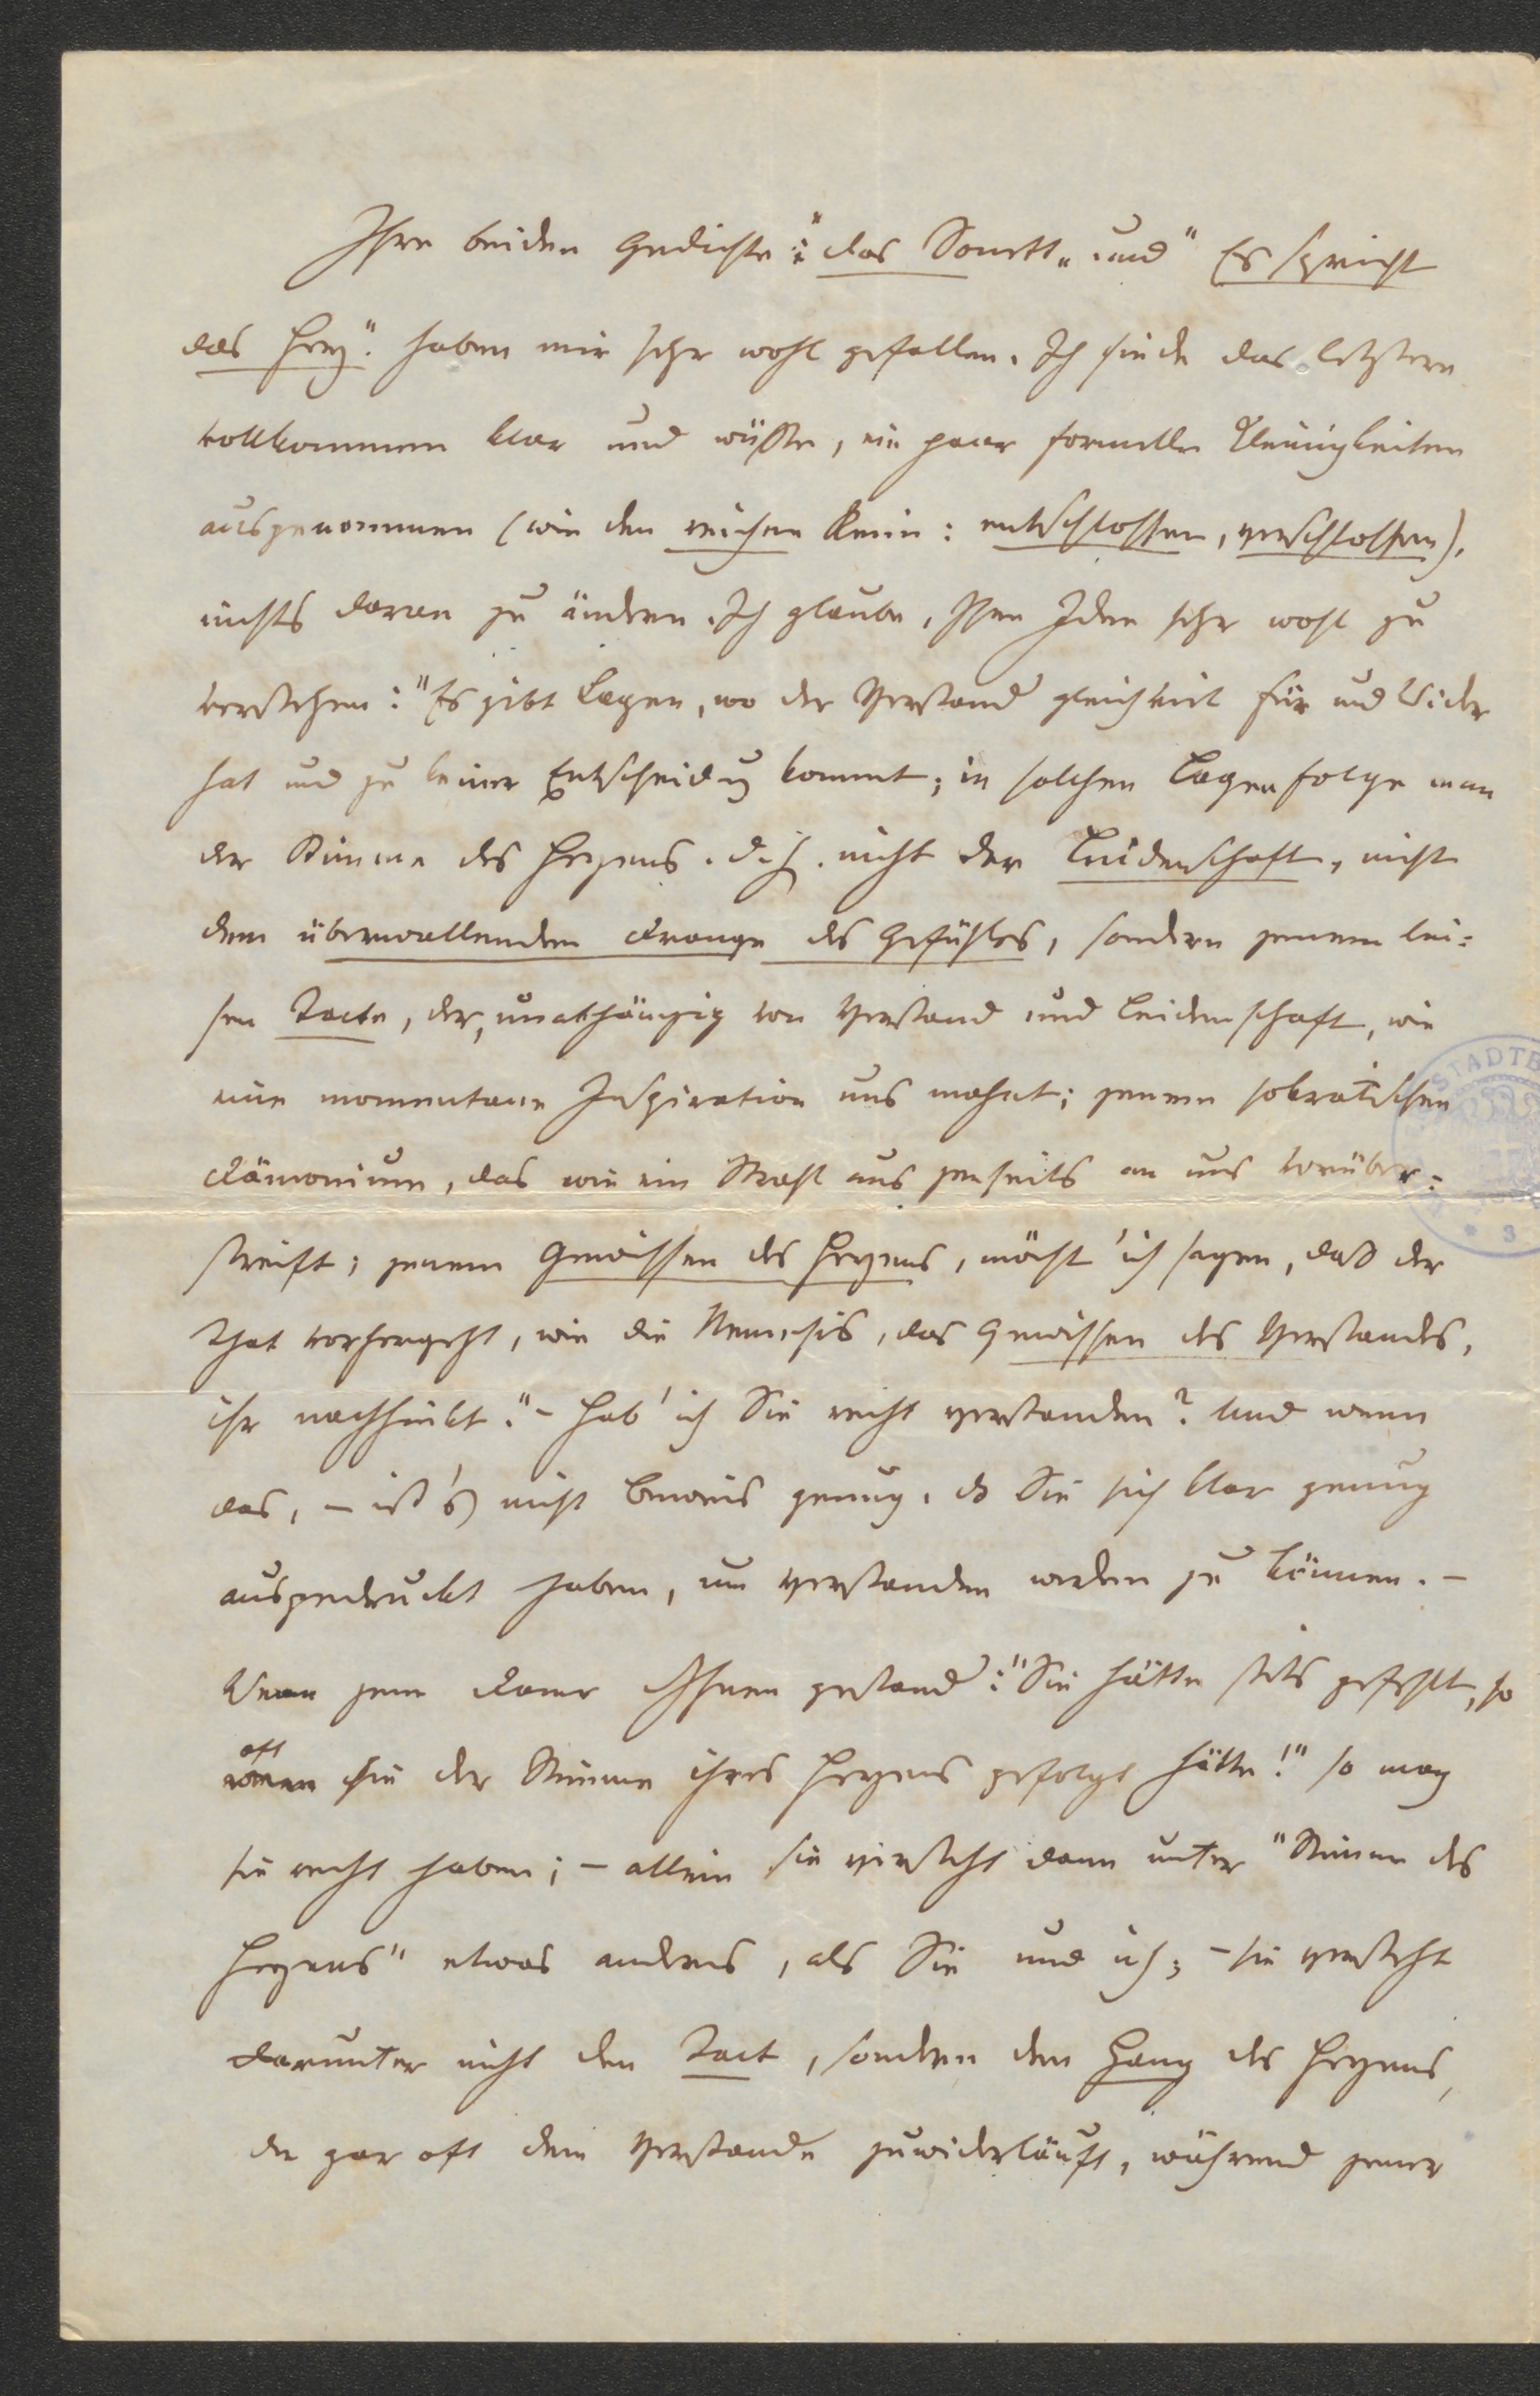 Ihre beiden Gedichte: "das Sonett" und "Es spricht
das Herz" haben mir sehr wohl gefallen. Ich finde das letztere
vollkommen klar und wüßte, ein paar formelle Kleinigkeiten
ausgenommen (wie den reichen Reim: entschlossen, verschlossen),
nichts daran zu ändern. Ich glaube, Ihre Idee sehr wohl zu
verstehen: "Es gibt Lagen, wo der Verstand gleich viel Für und Wider
hat und zu keiner Entscheidung kommt; in solchen Lagen folge man
der Stimme des Herzens. d. h. nicht der Leidenschaft, nicht
dem überwallenden Drange des Gefühles, sondern jenem lei=
sen Tacte, der, unabhängig von Verstand und Leidenschaft, wie
eine momentane Inspiration uns mahnt; jenem sokratischen
Dämonium, das wie ein Strahl aus jenseits an uns vorüber=
streift; jenem Gewissen des Herzens, möcht' ich sagen, daß der
That vorhergeht, wie die Nemesis, das Gewissen des Verstandes,
ihr nachhinkt." – Hab' ich Sie recht verstanden? Und wenn
das, – ist's nicht Beweis genug, dß Sie sich klar genug
ausgedruckt haben, um verstanden werden zu können. –
Wenn jene Dame Ihnen gestand: "Sie hätte stets gefehlt, so
oft sie der Stimme ihres Herzens gefolgt hätte!" so mag
sie recht haben; – allein sie versteht dann unter "Stimme des
Herzens" etwas anderes, als Sie und ich; – sie versteht
darunter nicht den Tact, sondern den Hang des Herzens,
der gar oft dem Verstande zuwiderläuft, während jener
STADTB